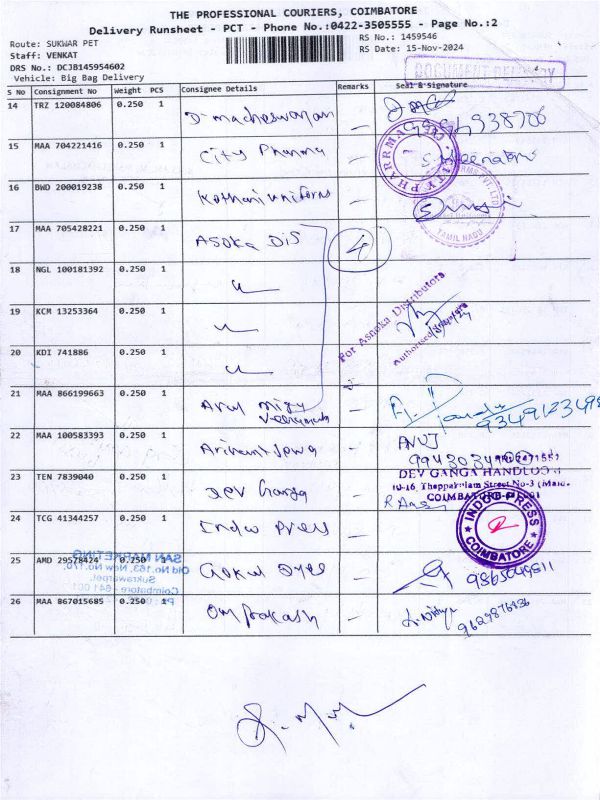 THE PROFESSIONAL COURIERS, COIMBATORE
Delivery Runsheet - PCT - Phone No.:0422-3505555 - Page No.:2
Route: SUKWAR PET RS No.: 1459546
Staff: VENKAT RS Date: 15-Nov-2024
DRS No.: DCJB145954602
Vehicle: Big Bag Delivery
DOCUMENT DELIVERY
S No Consignment No Weight PCS Consignee Details Remarks Seal & Signature
14 TRZ 120084806 0.250 1 D-macheswaran –
15 MAA 704221416 0.250 1 City Pharma – CITY PHARMACY
16 BWD 200019238 0.250 1 Kothari uniforms – TAMIL NADU
17 MAA 705428221 0.250 1 ASOKA DIS 4
18 NGL 100181392 0.250 1 "
19 KCM 13253364 0.250 1 " For Asnoka Distributors
Authorised Signatory
20 KDI 741886 0.250 1 "
21 MAA 866199663 0.250 1 Arul –
22 MAA 100583393 0.250 1 Arihant Jewa – ANUJ
23 TEN 7839040 0.250 1 Dev Ganga – DEV GANGA HANDLOOM
COIMBATORE
24 TCG 41344257 0.250 1 Indoo Press – INDOO PRESS
COIMBATORE
25 AMD 29578424 0.250 1 Gokul Dyes –
SAN MARKETING
Old No.163, New No.170
Sukrawarpet,
Coimbatore - 641 001
26 MAA 867015685 0.250 1 Om Prakash – 9629876936